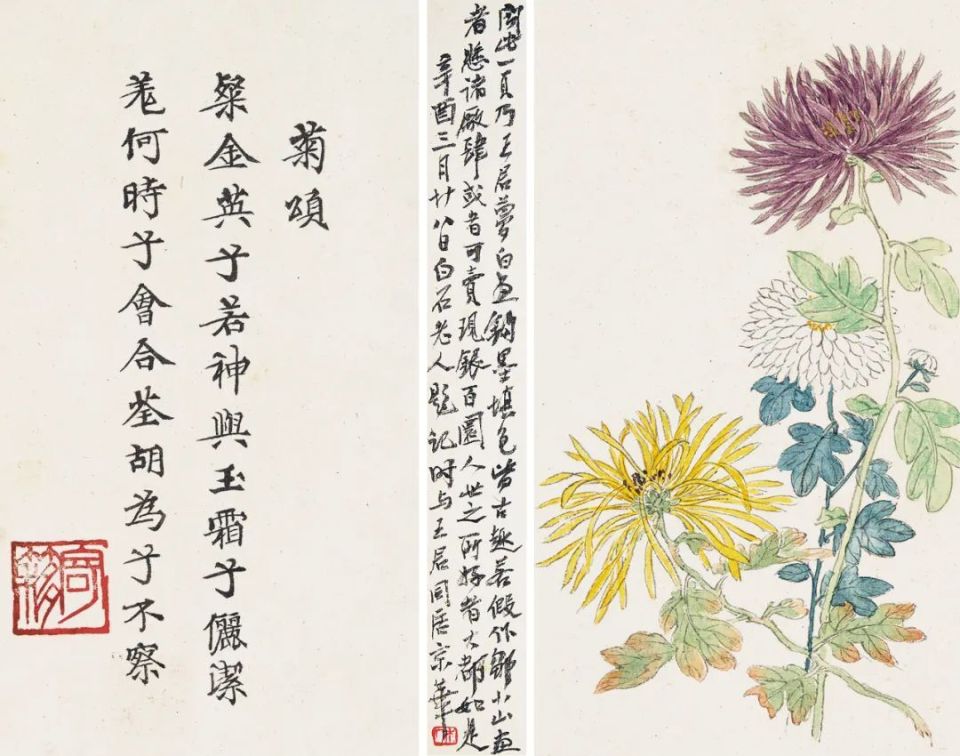 此一頁乃王君夢白画鈎墨填色皆古趣若假作鄒小山画
者懸諸廠肆或者可賣現銀百圓人世之所好者大都如是
辛酉三月廿八日白石老人題記時与王君同居京華
菊頌
粲金英兮若神與玉霜兮儷潔
羌何時兮會合荃胡為兮不察